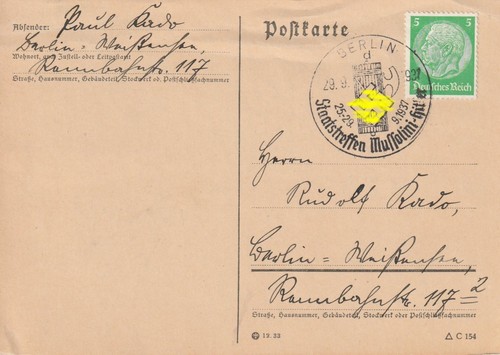 Absender: Paul Kado
Berlin = Weißensee,
Wohnort, auch Zustell- oder Leitpostamt
Rennbahnstr. 117
Straße, Hausnummer, Gebäudeteil, Stockwerk od. Postschließfachnummer
Postkarte
5 5
Deutsches Reich
BERLIN
d
29.9.
25.-29. 9.1937
Staatstreffen Mussolini-Hitler
Herrn
Rudolf Kado,
Berlin = Weißensee,
Rennbahnstr. 117
Straße, Hausnummer, Gebäudeteil, Stockwerk oder Postschließfachnummer
12. 33
C 154